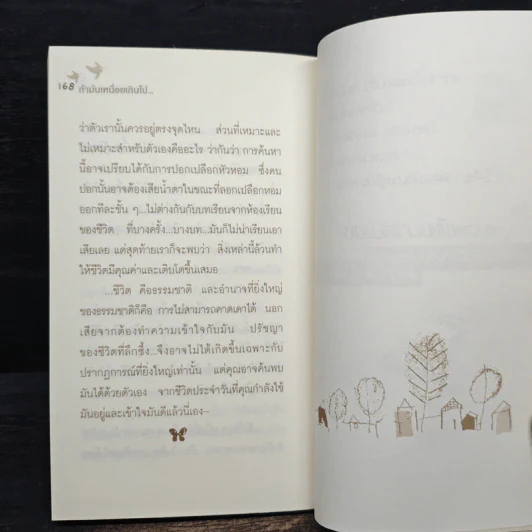 168 ถ้ามันเหนื่อยเกินไป...
ว่าตัวเรานั้นควรอยู่ตรงจุดไหน ส่วนที่เหมาะและ
ไม่เหมาะสำหรับตัวเองคืออะไร ว่ากันว่า การค้นหา
นี้อาจเปรียบได้กับการปอกเปลือกหัวหอม ซึ่งคน
ปอกนั้นอาจต้องเสียน้ำตาในขณะที่ลอกเปลือกหอม
ออกทีละชั้น ๆ...ไม่ต่างกันกับบทเรียนจากห้องเรียน
ของชีวิต ที่บางครั้ง...บางบท...มันก็ไม่น่าเรียนเอา
เสียเลย แต่สุดท้ายเราก็จะพบว่า สิ่งเหล่านี้ล้วนทำ
ให้ชีวิตมีคุณค่าและเติบโตขึ้นเสมอ
...ชีวิต คือธรรมชาติ และอำนาจที่ยิ่งใหญ่
ของธรรมชาติก็คือ การไม่สามารถคาดเดาได้ นอก
เสียจากต้องทำความเข้าใจกับมัน ปรัชญา
ของชีวิตที่ลึกซึ้ง...จึงอาจไม่ได้เกิดขึ้นเฉพาะกับ
ปรากฏการณ์ที่ยิ่งใหญ่เท่านั้น แต่คุณอาจค้นพบ
มันได้ด้วยตัวเอง จากชีวิตประจำวันที่คุณกำลังใช้
มันอยู่และเข้าใจมันดีแล้วนี่เอง~